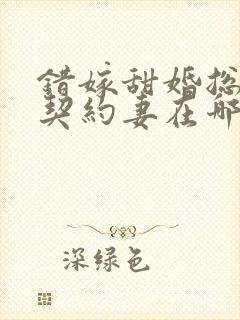 錯嫁甜婚总
契約妻在哪
深绿色